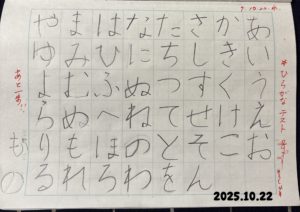 7.10.22.水
*ひらがなテスト
あいうえお
かきくけこ
さしすせそ
たちつてと
なにぬねの
はひふへほ
まみむぬも
やゆよ
らりるれろ
わをん
2025.10.22